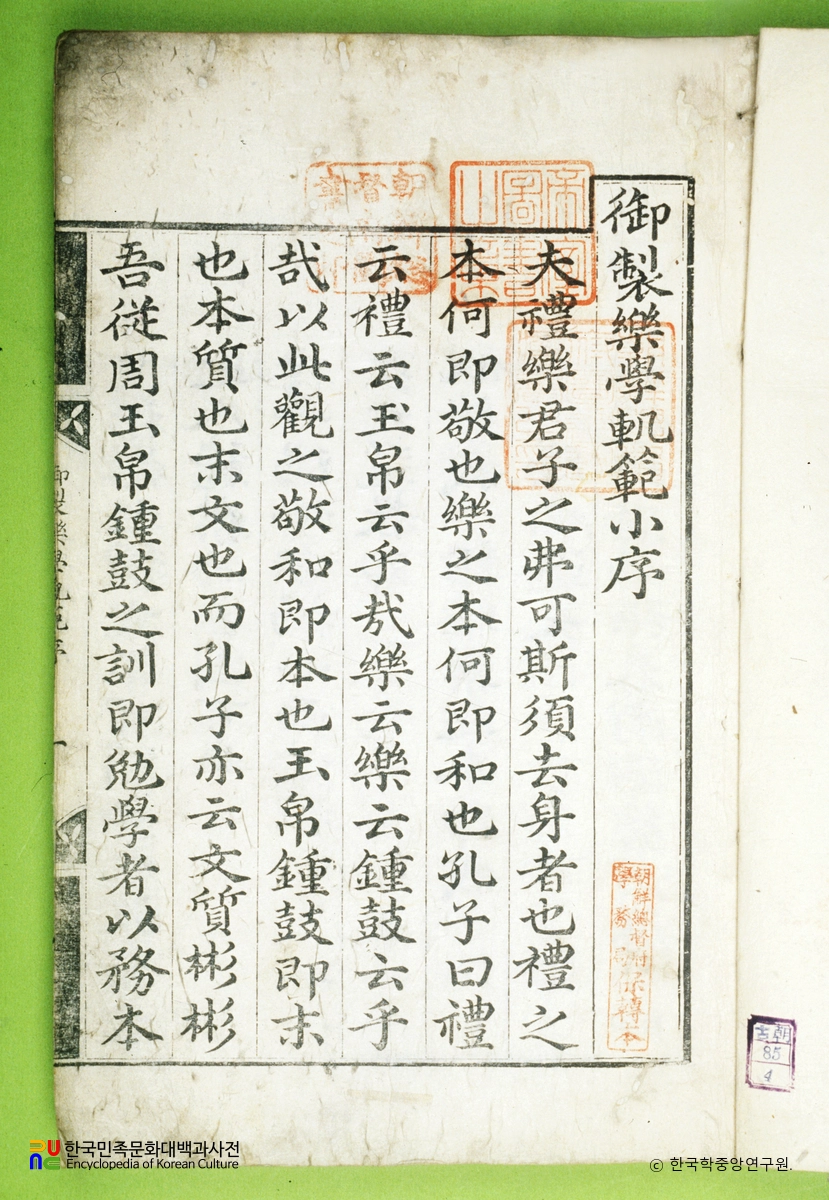 御製樂學軌範小序
夫禮樂君子之弗可斯須去身者也禮之
本何即敬也樂之本何即和也孔子曰禮
云禮云玉帛云乎㢤樂云樂云鍾鼓云乎
哉以此觀之敬和即本也玉帛鍾鼓即末
也本質也末文也而孔子亦云文質彬彬
吾從周玉帛鍾鼓之訓即勉學者以務本
朝鮮總督府
學務局
朝
古
85
4
한국민족문화대백과사전
Encyclopedia of Korean Culture
© 한국학중앙연구원.